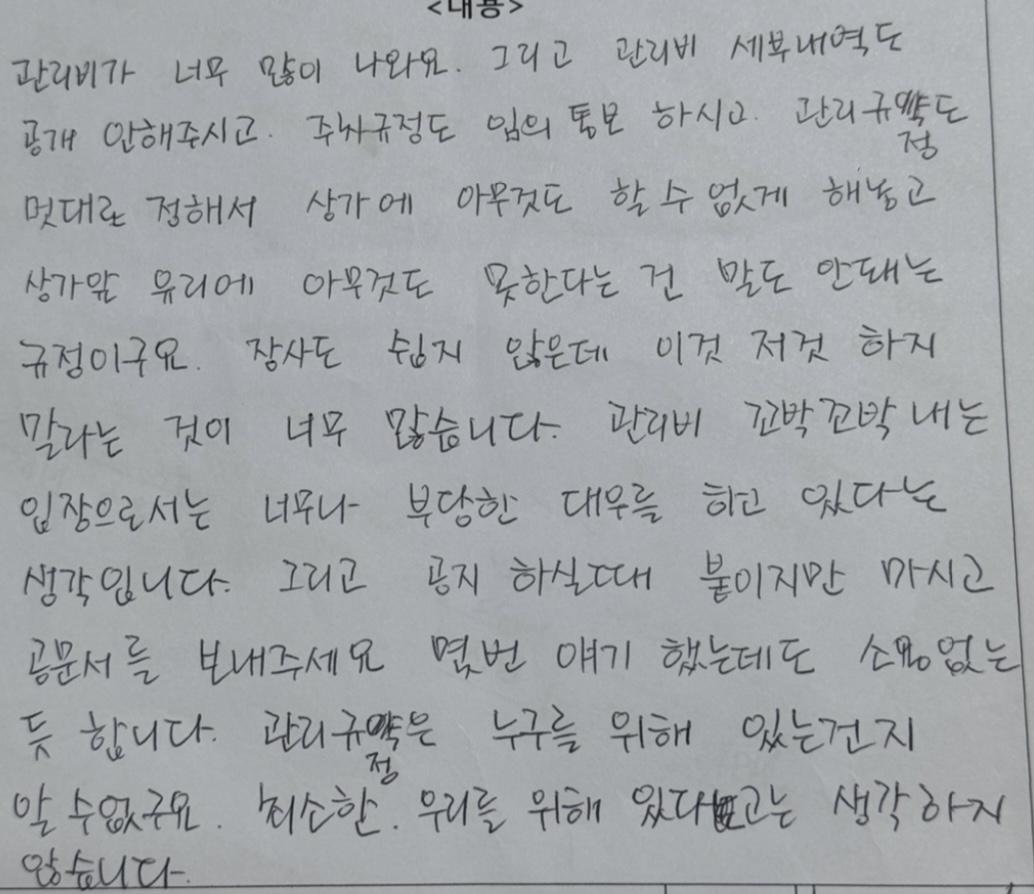 <내용>
관리비가 너무 많이 나와요. 그리고 관리비 세부내역도
공개 안해주시고. 주차규정도 임의 통보 하시고. 관리규정도
멋대로 정해서 상가에 아무것도 할 수 없게 해놓고
상가앞 유리에 아무것도 못한다는 건 말도 안돼는
규정이구요. 장사도 쉽지 않은데 이것 저것 하지
말라는 것이 너무 많습니다. 관리비 꼬박꼬박 내는
입장으로서는 너무나 부당한 대우를 하고 있다는
생각입니다. 그리고 공지 하실때 붙이지만 마시고
공문서를 보내주세요 몇번 얘기 했는데도 소용없는
듯 합니다. 관리규정은 누구를 위해 있는건지
알 수없구요. 최소한. 우리를 위해 있다고는 생각하지
않습니다.